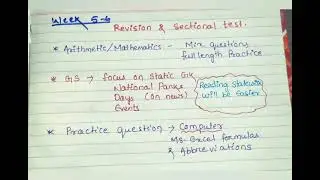 Week 5-6
Revision & Sectional test.
* Arithmetic/Mathematics - Mix questions
full length Practice
* GS → focus on Static GK
National Parks
Days (on news)
Events
Reading statewise
will be Easier
* Practice question → Computer
MS-Excel formulas
& Abbreviations